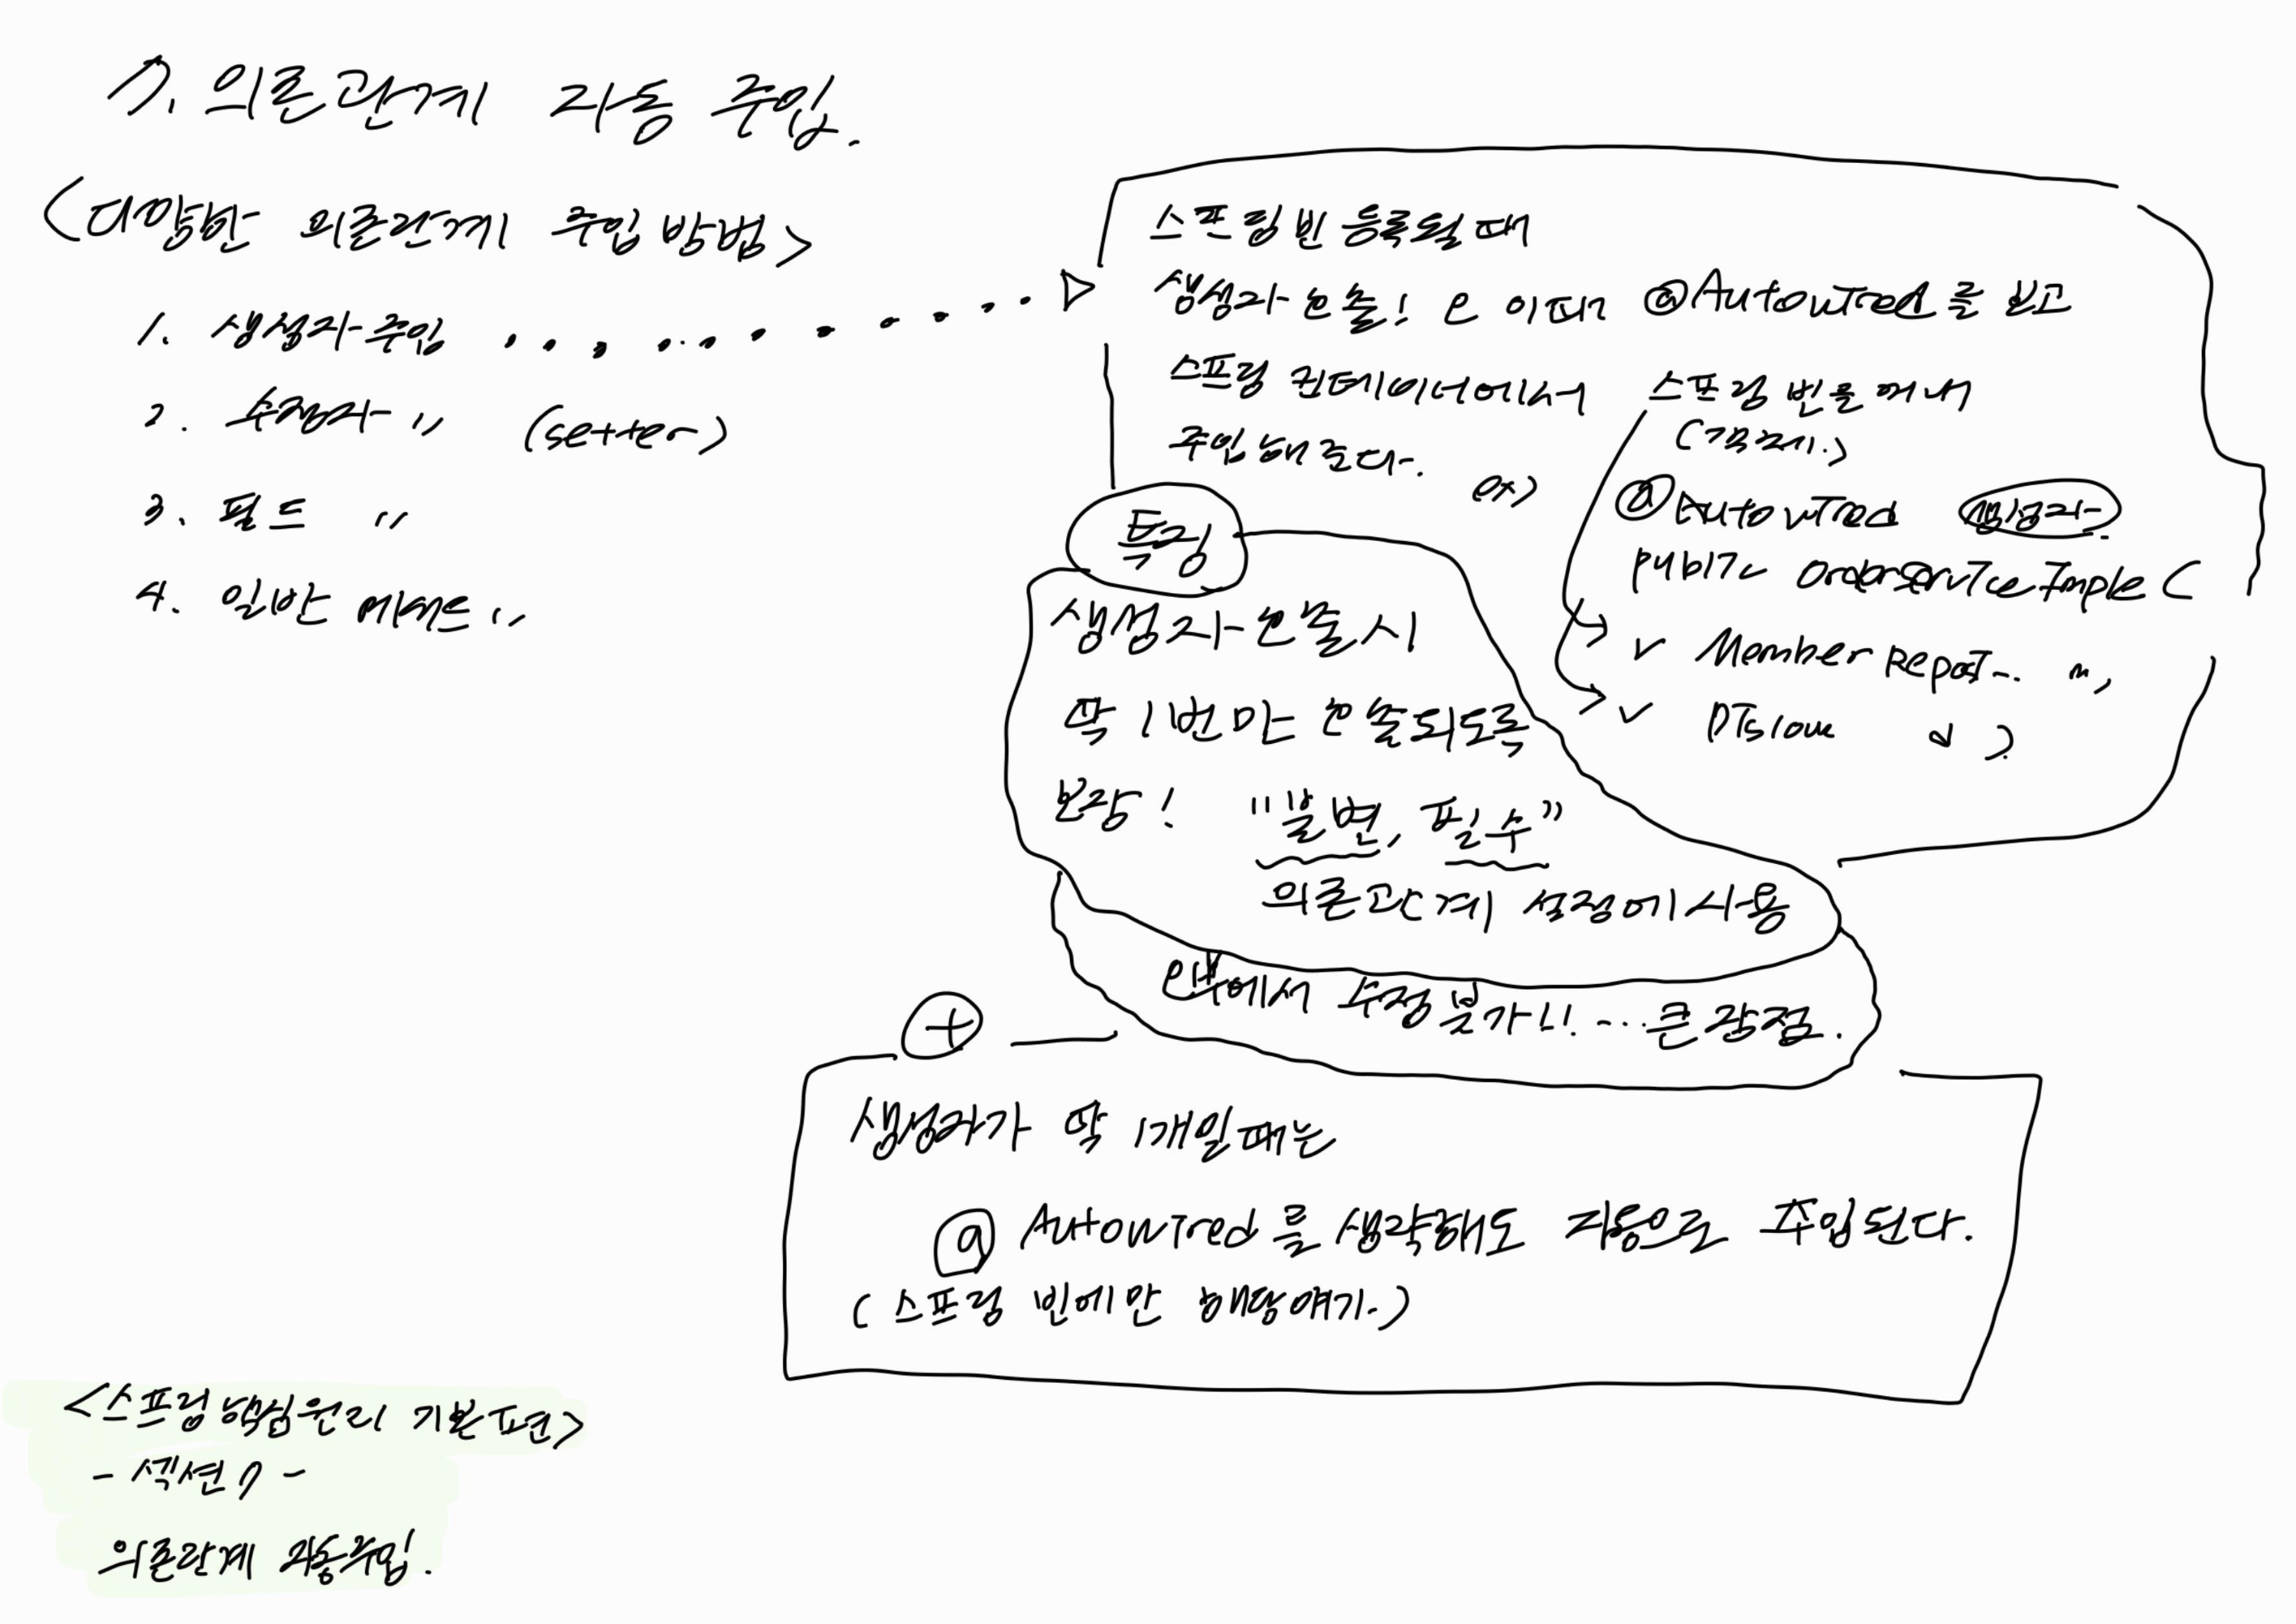 7. 의존관계 자동 주입.
<다양한 의존관계 주입 방법>
1. 생성자 주입
2. 수정자 〃 (setter)
3. 필드 〃
4. 일반 메서드 〃
스프링 빈 등록될 때
생성자 호출! 이때 @Autowired를 보고
스프링 컨테이너에서 스프링 빈을 꺼내
(객체.)
주입해준다.
ex)
@Autowired 생성자
public OrderServiceImple (
v MemberReposi..
v Discou )
특징
생성자 호출시
딱 1번만 호출되도록
보장! "불변, 필수"
의존관계 설정에 사용
에서 수정 불가!! ... 큰 장점.
+
생성자가 딱 1개일때는
@ Autowired를 생략해도 자동으로 주입된다.
(스프링 빈에만 해당 얘기.)
<스프링 핵심원리 기본편>
- 섹션 7 -
의존관계 자동주입.